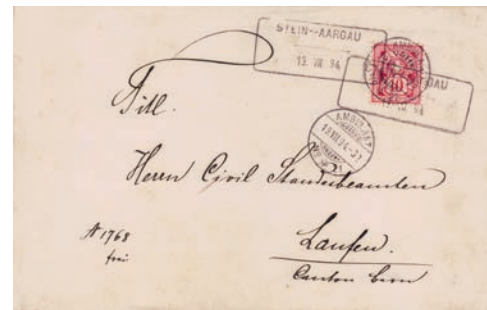 STEIN-AARGAU
13. VII. 94
10
AMBULANT
13.VII.94-
Titl.
Herrn Civil Standesbeamten
Laufen.
Canton Bern
A 1768
frei